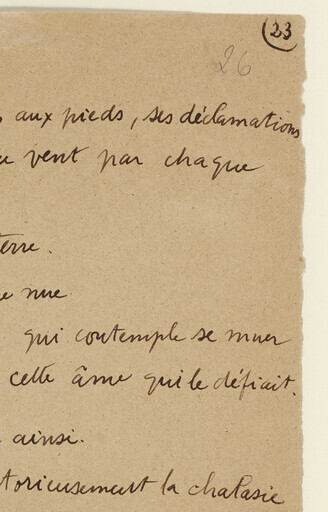 23
26
aux pieds, ses déclamations
vent par chaque
terre.
nue
qui contemple se muer
cette âme qui le défiait.
ainsi.
torieusement la chalasie